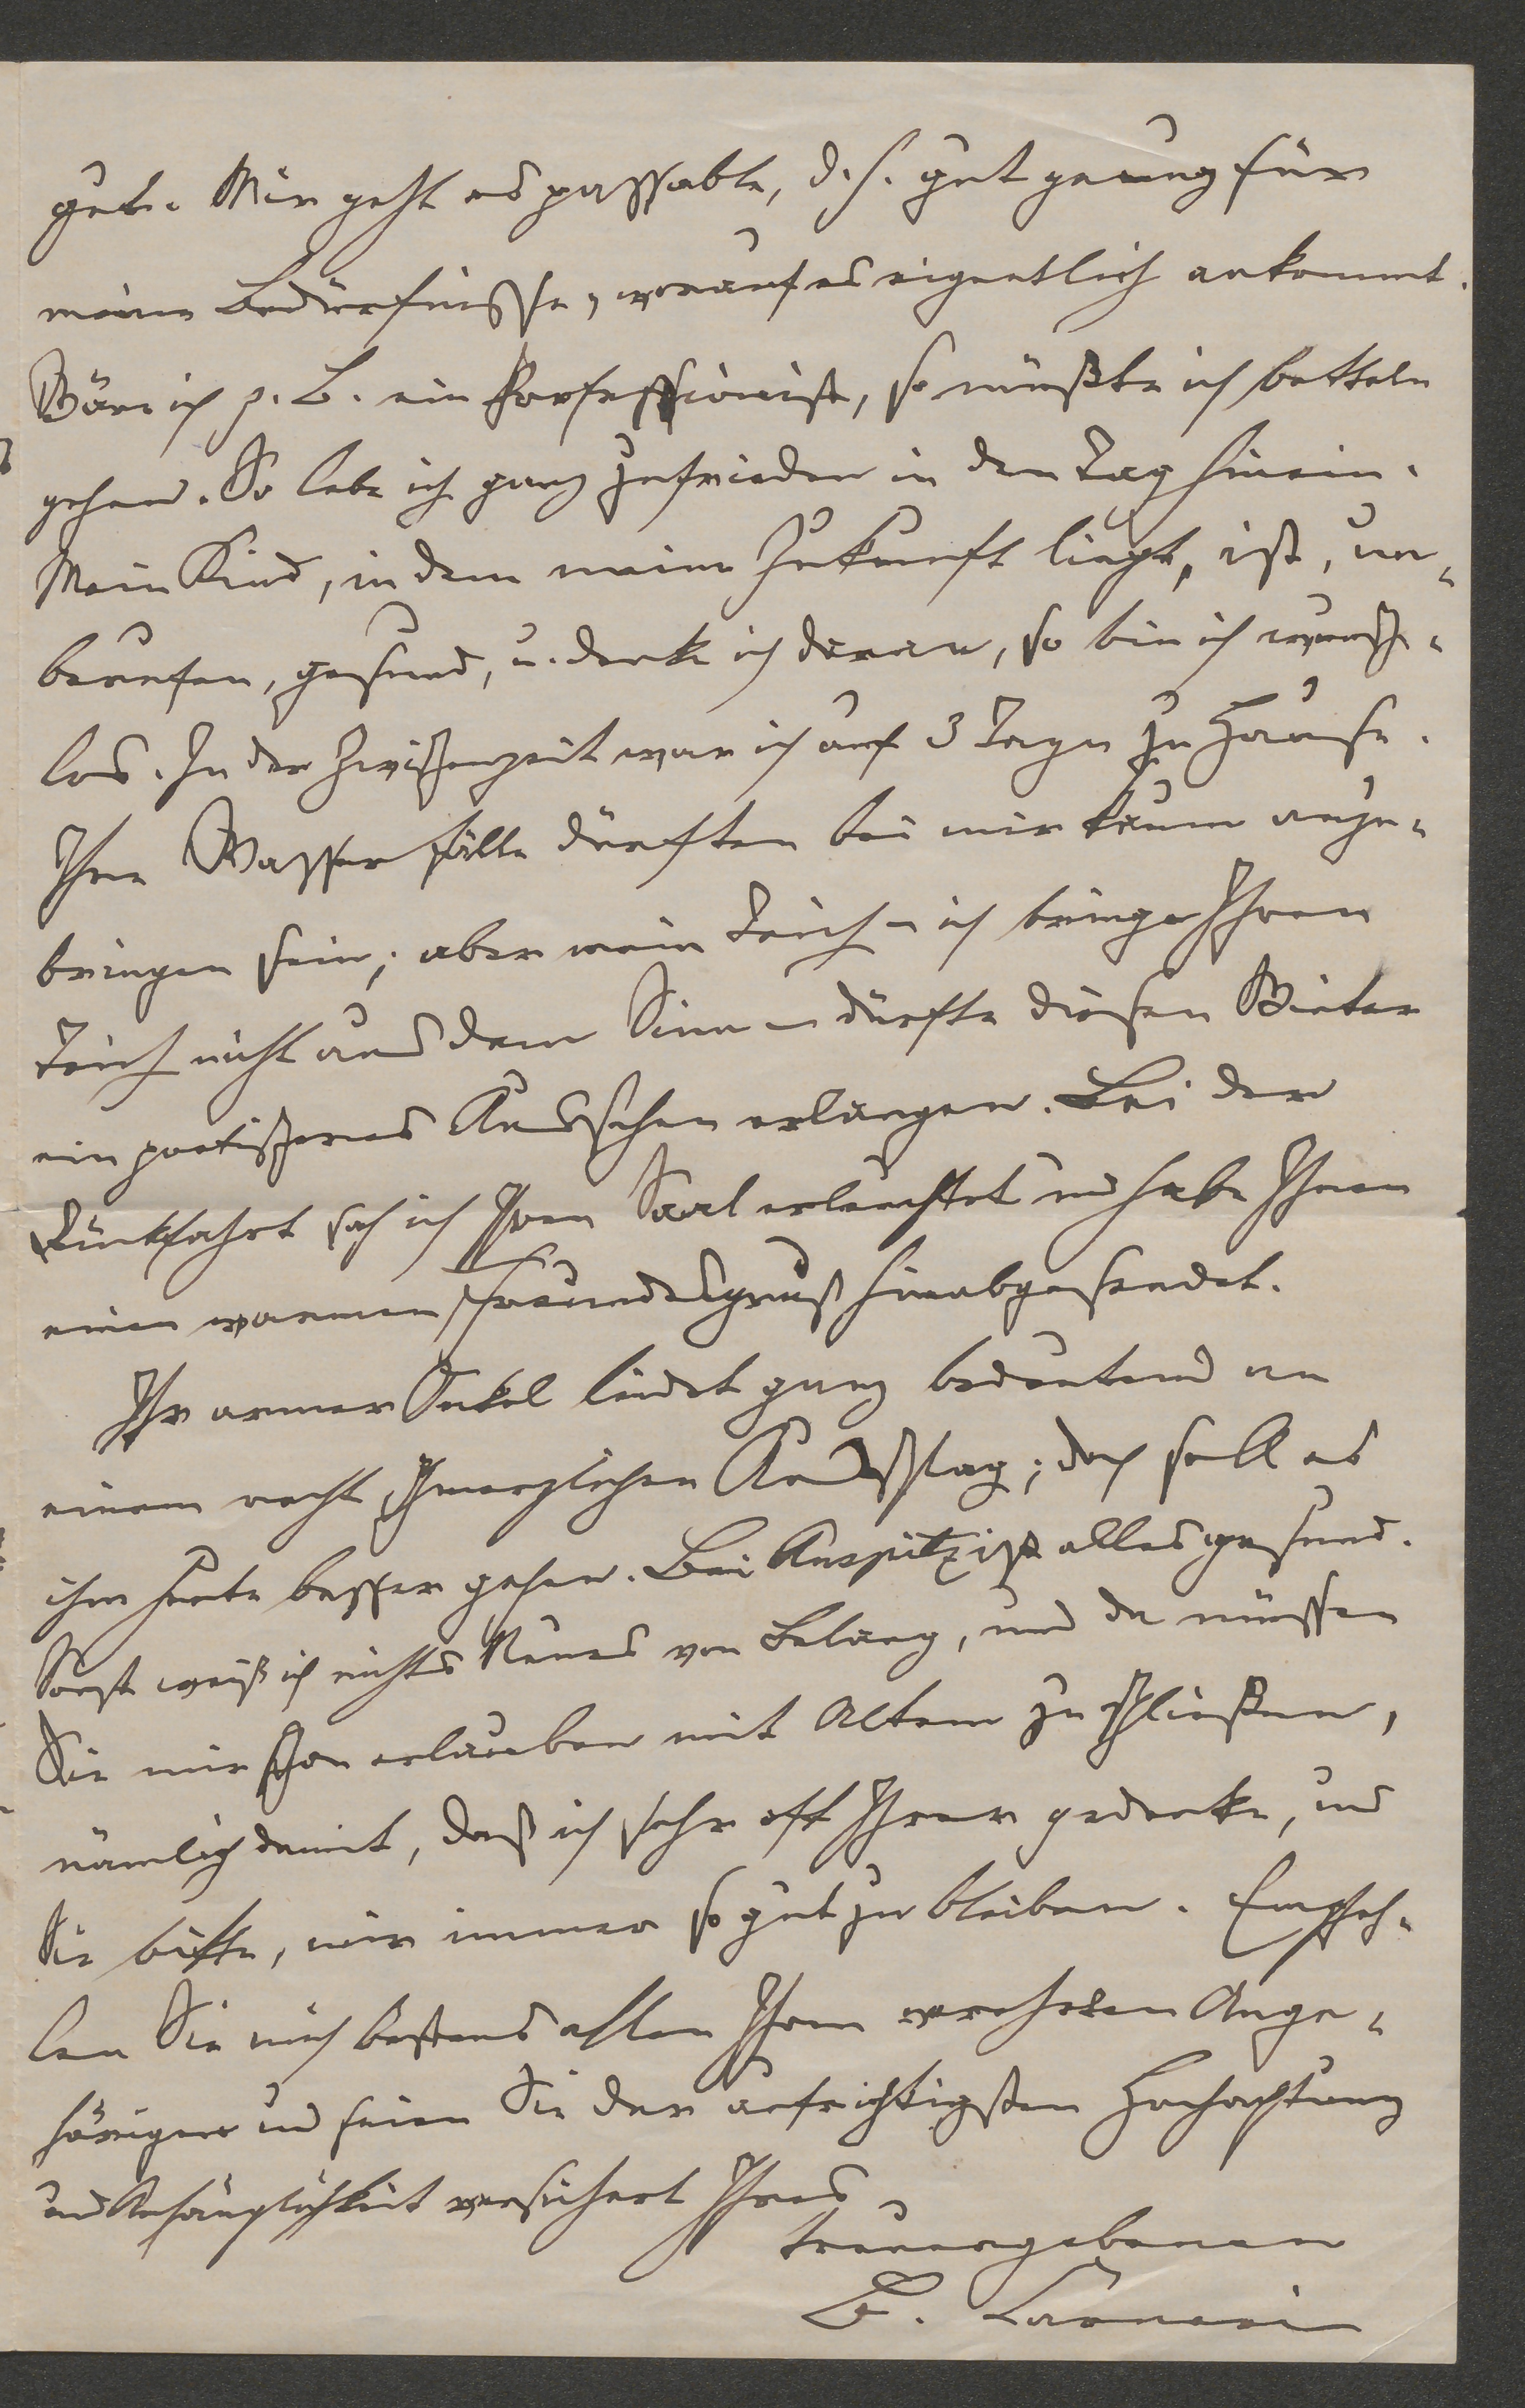 gut. Mir geht es passable, d. h. gut genug für
meine Bedürfnisse, worauf es eigentlich ankommt.
Wäre ich z. B. ein Professionist, so müßte ich betteln
gehen. So lebe ich ganz zufrieden in den Tag hinein.
Mein Kind, in dem meine Zukunft liegt, ist, un-
berufen, gesund, u. denke ich daran, so bin ich wunsch-
los. In der Zwischenzeit war ich auf 3 Tage zu Hause.
Ihre Wasserfälle dürften bei mir kaum anzu-
bringen sein; aber mein Teich – ich bringe Ihren
Teich nicht aus dem Sinn – dürfte diesen Winter
ein poetischeres Aussehen erlangen. Bei der
Rückfahrt sah ich Ihren Saal erleuchtet und habe Ihnen
einen warmen Freundesgruß hinabgesendet.
Ihr armer Onkel leidet ganz bedeutend an
einem recht schmerzlichen Ausschlag; doch soll es
ihm heute besser gehen. Bei Auspitz ist alles gesund.
Sonst weiß ich nichts Neues von Belang, und da müssen
Sie mir schon erlauben mit Altem zu schließen,
nämlich damit, daß ich sehr oft Ihrer gedenke, und
Sie bitte, mir immer so gut zu bleiben. Empfeh-
len Sie mich bestens allen Ihren verehrten Ange-
hörigen und seien Sie der aufrichtigsten Hochachtung
und Anhänglichkeit versichert Ihres
treuergebenen
B. Carneri